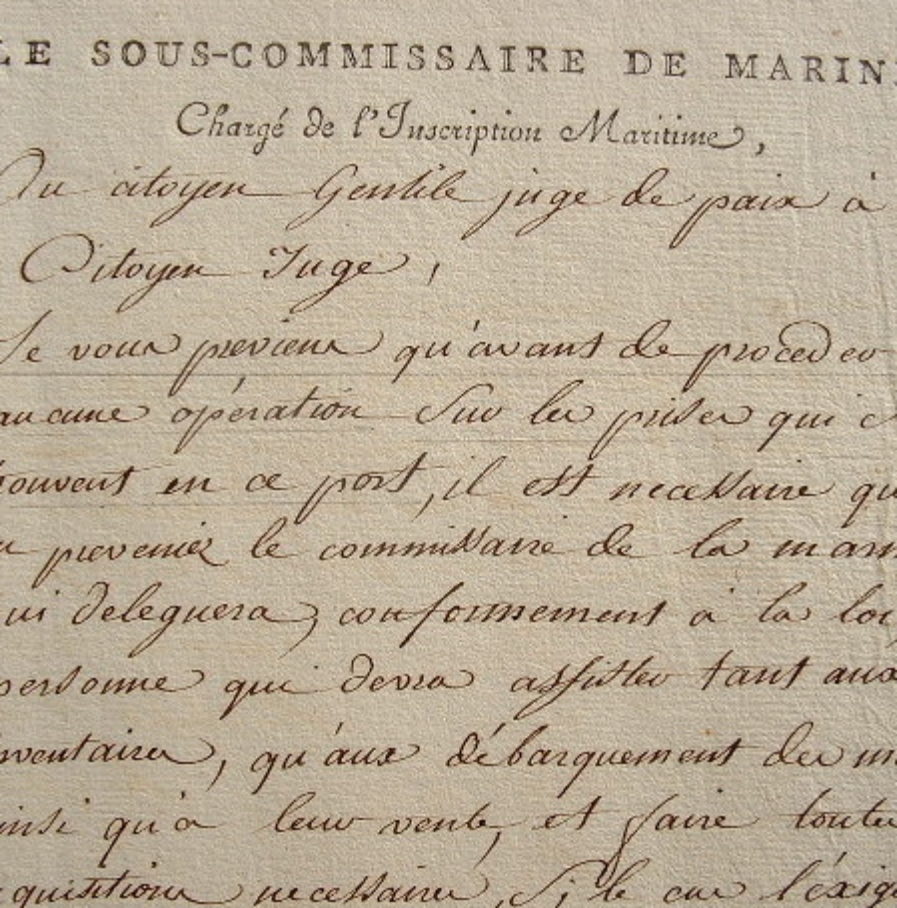 LE SOUS-COMMISSAIRE DE MARINE
Chargé de l'Inscription Maritime,
Au citoyen Gentile juge de paix à
Citoyen Juge,
Je vous previens qu'avant de proceder
aucune opération Sur les prises qui s
trouvent en ce port, il est necessaire qu
preveniez le commissaire de la mari
ui deleguera, conformement à la loi,
personne qui devra assister tant aux
nventaires, qu'aux débarquement des m
insi qu'à leur vente, et faire toutes
quisitions necessaires, Si le cas l'éxig